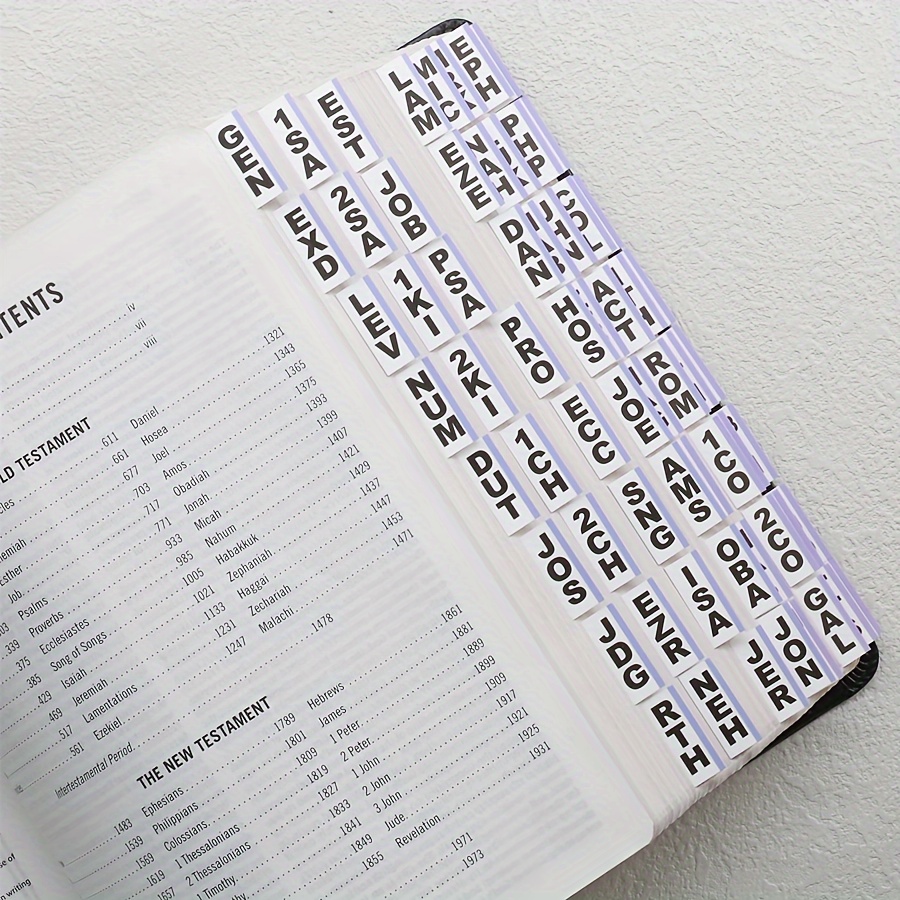 TENTS
iv
vii
viii
LD TESTAMENT
611
661
emiah 677
Esther 703
Job 717
Psalms 771
Proverbs 933
Ecclesiastes 985
Song of Songs 1005
Isaiah 1021
Jeremiah 1133
Lamentations 1231
Ezekiel 1247
339
375
385
429
469
517
561
Daniel 1321
Hosea 1343
Joel 1365
Amos 1375
Obadiah 1393
Jonah 1399
Micah 1407
Nahum 1421
Habakkuk 1429
Zephaniah 1437
Haggai 1447
Zechariah 1453
Malachi 1471
Intertestamental Period 1478
THE NEW TESTAMENT
1483
1539
1569
1619
1657
Ephesians 1789
Philippians 1801
Colossians 1809
1 Thessalonians 1819
2 Thessalonians 1827
1 Timothy 1833
1841
1849
1855
Hebrews 1861
James 1881
1 Peter 1899
2 Peter 1909
1 John 1917
2 John 1921
3 John 1925
Jude 1931
Revelation
1971
1973
GEN
EXD
LEV
NUM
DUT
JOS
JDG
RTH
1SA
2SA
1KI
2KI
1CH
2CH
EZR
NEH
EST
JOB
PSA
PRO
ECC
SNG
ISA
JER
LAM
EZE
DAN
HOS
JOE
AMS
OBA
JON
MIC
NAH
JHN
ACT
ROM
1CO
2CO
GAL
EPH
PHP
COL